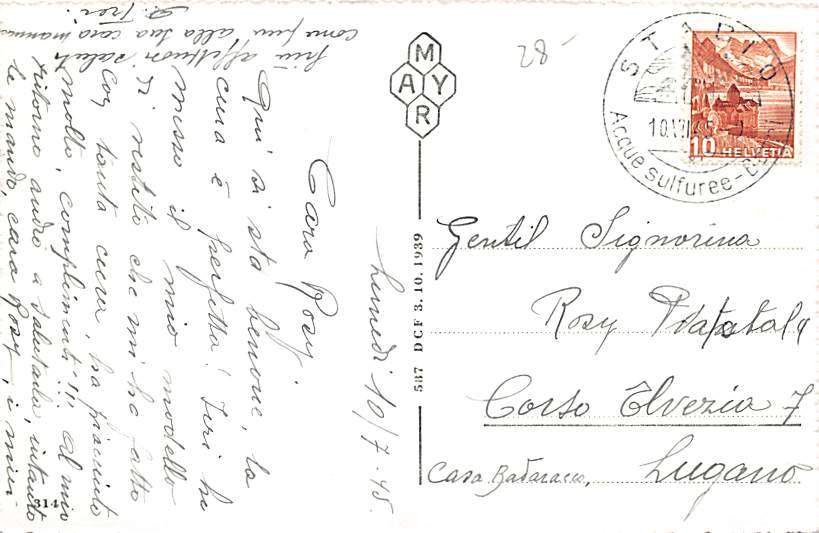 Lunedì 10/7.45.
Cara Rosy.
Qui si sta benone, la
cura è perfetta! Ieri ho
messo il mio modello
di vestito che mi ha fatto
con tanta cura, ha piaciuto
molto, complimenti!!! Al mio
ritorno andrò a salutarla, intanto
le mando, cara Rosy, i miei
più affettuosi saluti
come pure alla sua cara mamma
314
MAYR
537 DCF 3.10.1939
28-
STABIO
10.VII.45
Acque sulfuree-
10 HELVETIA
Gentil Signorina
Rosy
Corso Elvezia 7
Casa Badaracco, Lugano